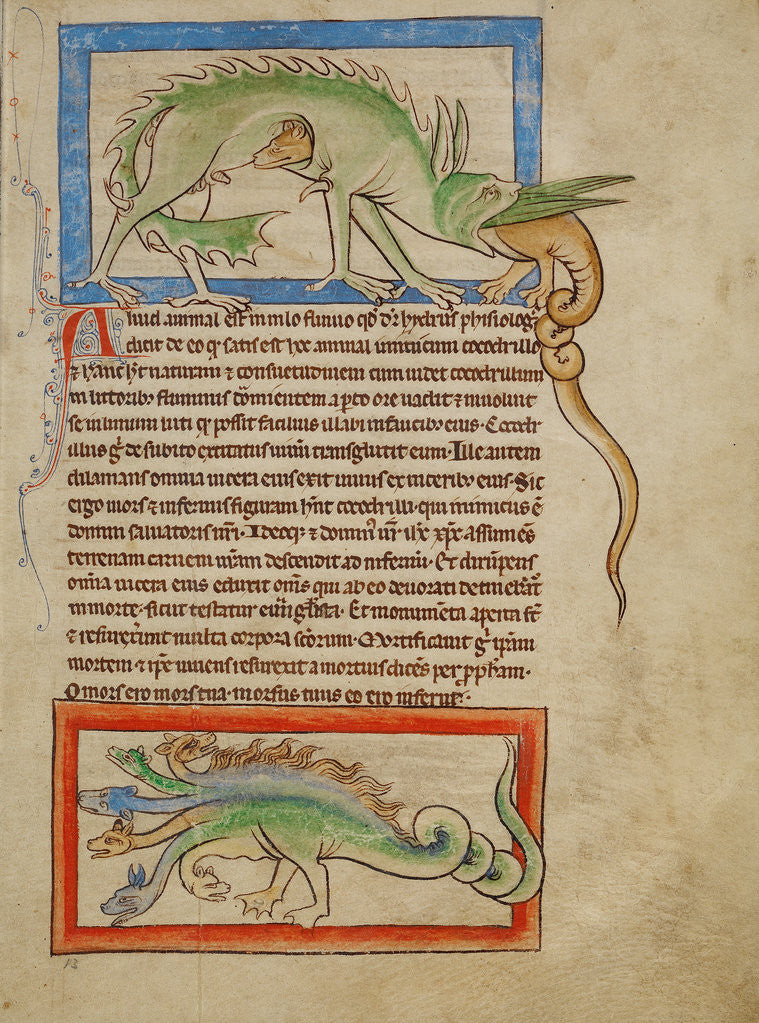 Aliud animal est in nilo fluuio qd̄ dr̄ hydrus phisiolog᷒
dicit de eo qͥ satis est hoc animal inimicum cocodrillo
⁊ hanc ht̄ naturam ⁊ consuetudinem cum uidet cocodrillum
in littorib; fluminis dormientem aperto ore uadit ⁊ inuoluit
se in limum luti qͦ possit facilius illabi in faucib; eius. Cocodr
illus gͦ de subito excitatus uiuum transglutit eum. Ille autem
dilanians omnia uiscera eius exit uiuus ex uiscerib; eius. Sic
ergo mors ⁊ infernus figuram hn̄t cocodrilli. qui inimicus ē
domini saluatoris nr̄i. Ideoq; ⁊ domin᷒ nr̄ ih̄c xp̄c assumēs
terrenam carnem nr̄am descendit ad infernū. Et dirūpens
om̄ia uiscera eius eduxit om̄s qui ab eo deuorati detinebāt᷒
in morte. sicut testatur euuāḡlista. Et monumēta aperta st̄
⁊ resurrexerūnt multa corpora sc̄orum. Mortificauit gͦ ipsam
mortem ⁊ ip̄e uiuens resurexit a mortuis dicēs per pp̄ham.
O mors ero mors tua. morsus tuus eo ero inferne.
13